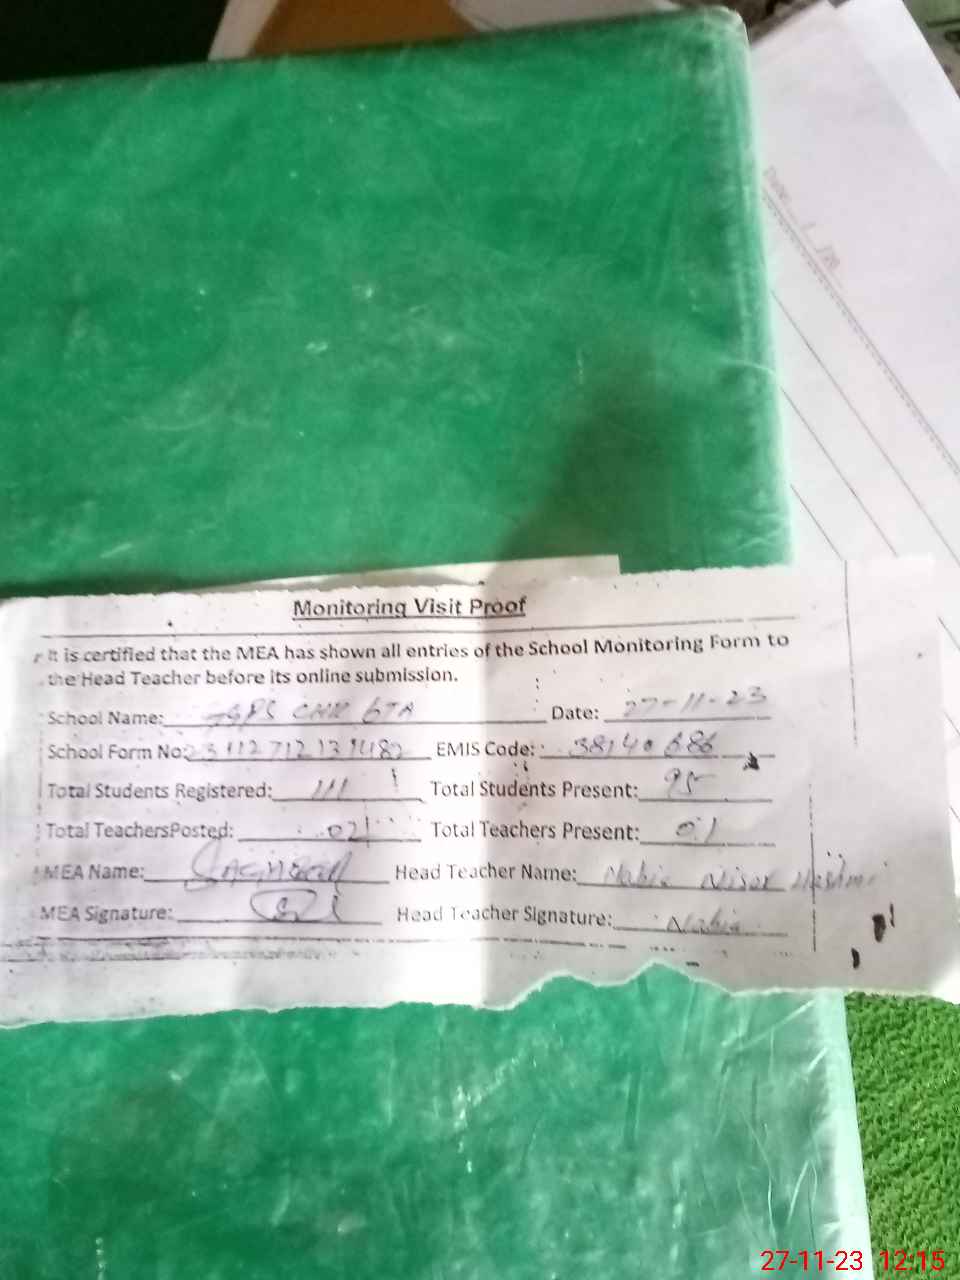 Date: / /20
Monitoring Visit Proof
It is certified that the MEA has shown all entries of the School Monitoring Form to
the Head Teacher before its online submission.
School Name: Date: 27-11-23
School Form No: EMIS Code:
Total Students Registered: 111 Total Students Present: 95
Total TeachersPosted: 02 Total Teachers Present: 01
MEA Name: Head Teacher Name: Nabia Nisar Hashmi
MEA Signature: Head Teacher Signature: Nabia
27-11-23 12:15